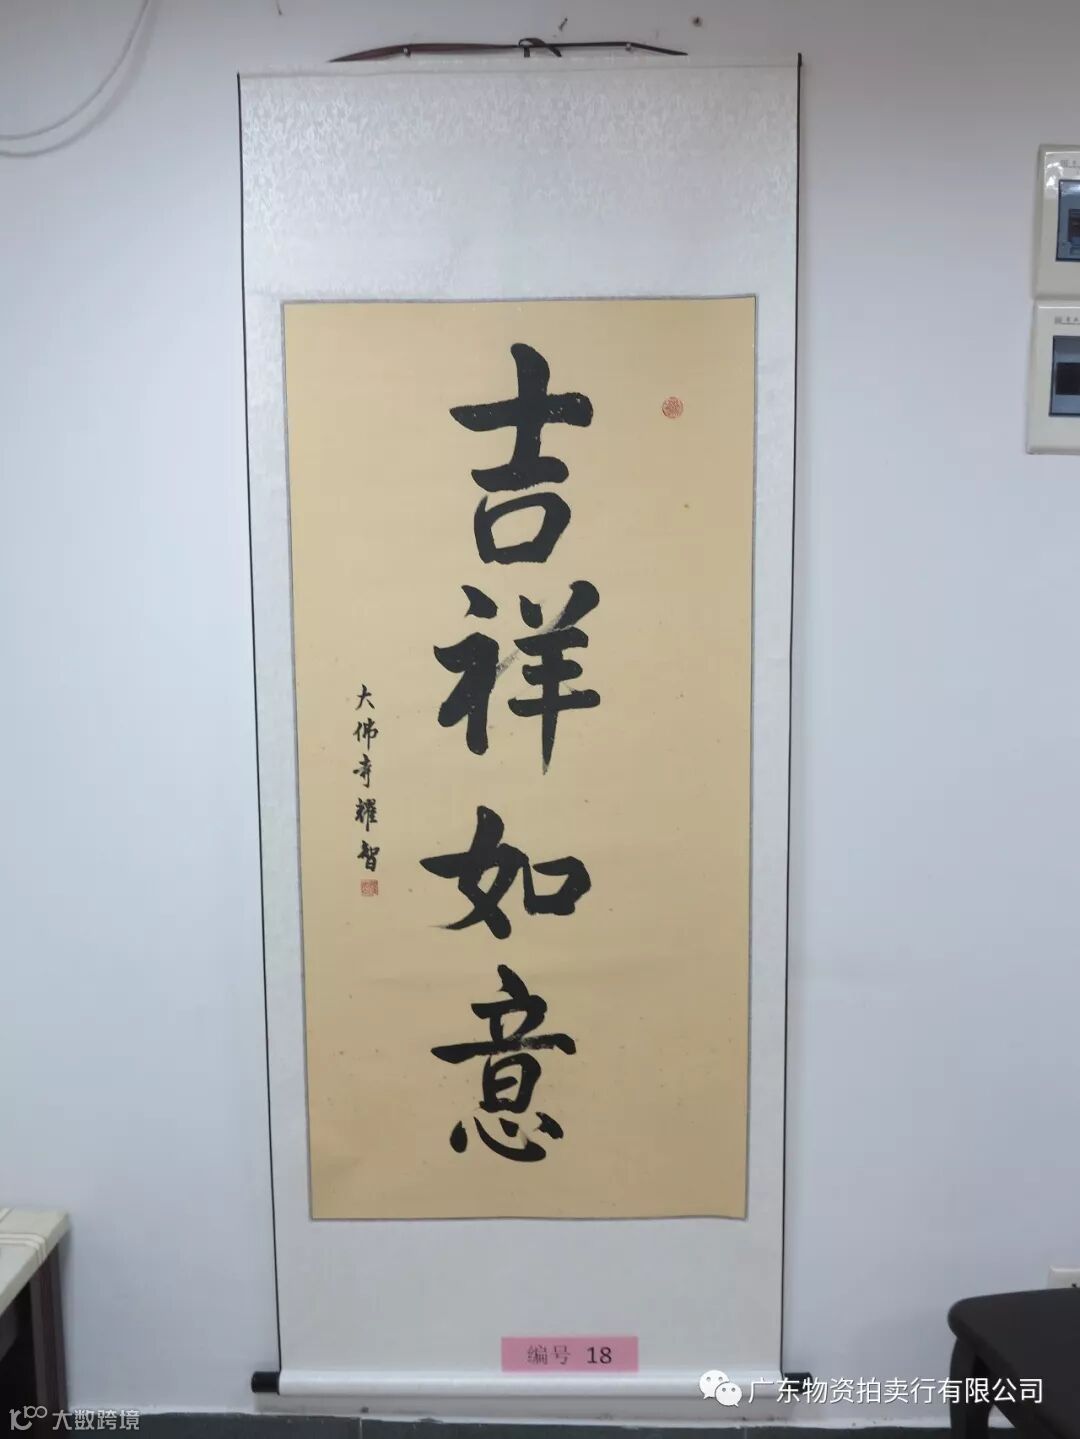 吉祥如意
大佛寺耀智
编号 18
广东物资拍卖行有限公司
大数跨境